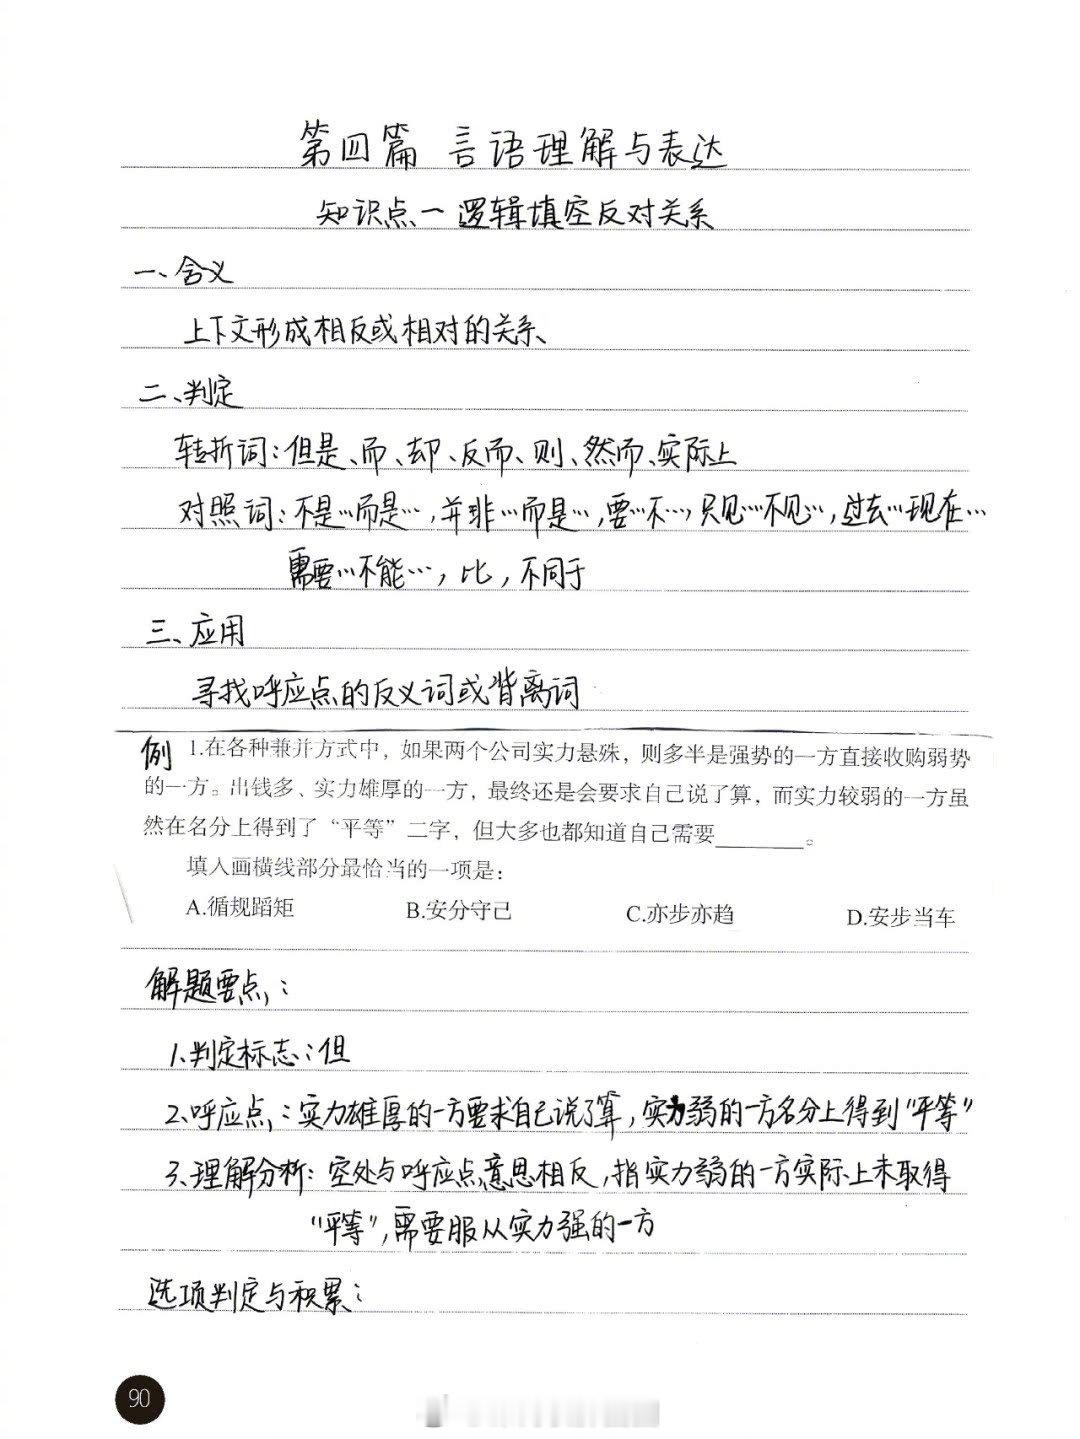 第四篇 言语理解与表达
知识点一 逻辑填空反对关系
一、含义
上下文形成相反或相对的关系、
二、判定
转折词：但是、而、却、反而、则、然而、实际上
对照词：不是…而是…，并非…而是…，要…不…，只见…不见…，过去…现在…
需要…不能…，比，不同于
三、应用
寻找呼应点的反义词或背离词
例 1.在各种兼并方式中，如果两个公司实力悬殊，则多半是强势的一方直接收购弱势
的一方。出钱多、实力雄厚的一方，最终还是会要求自己说了算，而实力较弱的一方虽
然在名分上得到了“平等”二字，但大多也都知道自己需要________。
填入画横线部分最恰当的一项是：
A.循规蹈矩 B.安分守己 C.亦步亦趋 D.安步当车
解题要点：
1、判定标志：但
2、呼应点：实力雄厚的一方要求自己说了算，实力弱的一方名分上得到“平等”
3、理解分析：空处与呼应点意思相反，指实力弱的一方实际上未取得
“平等”，需要服从实力强的一方
选项判定与积累：
90